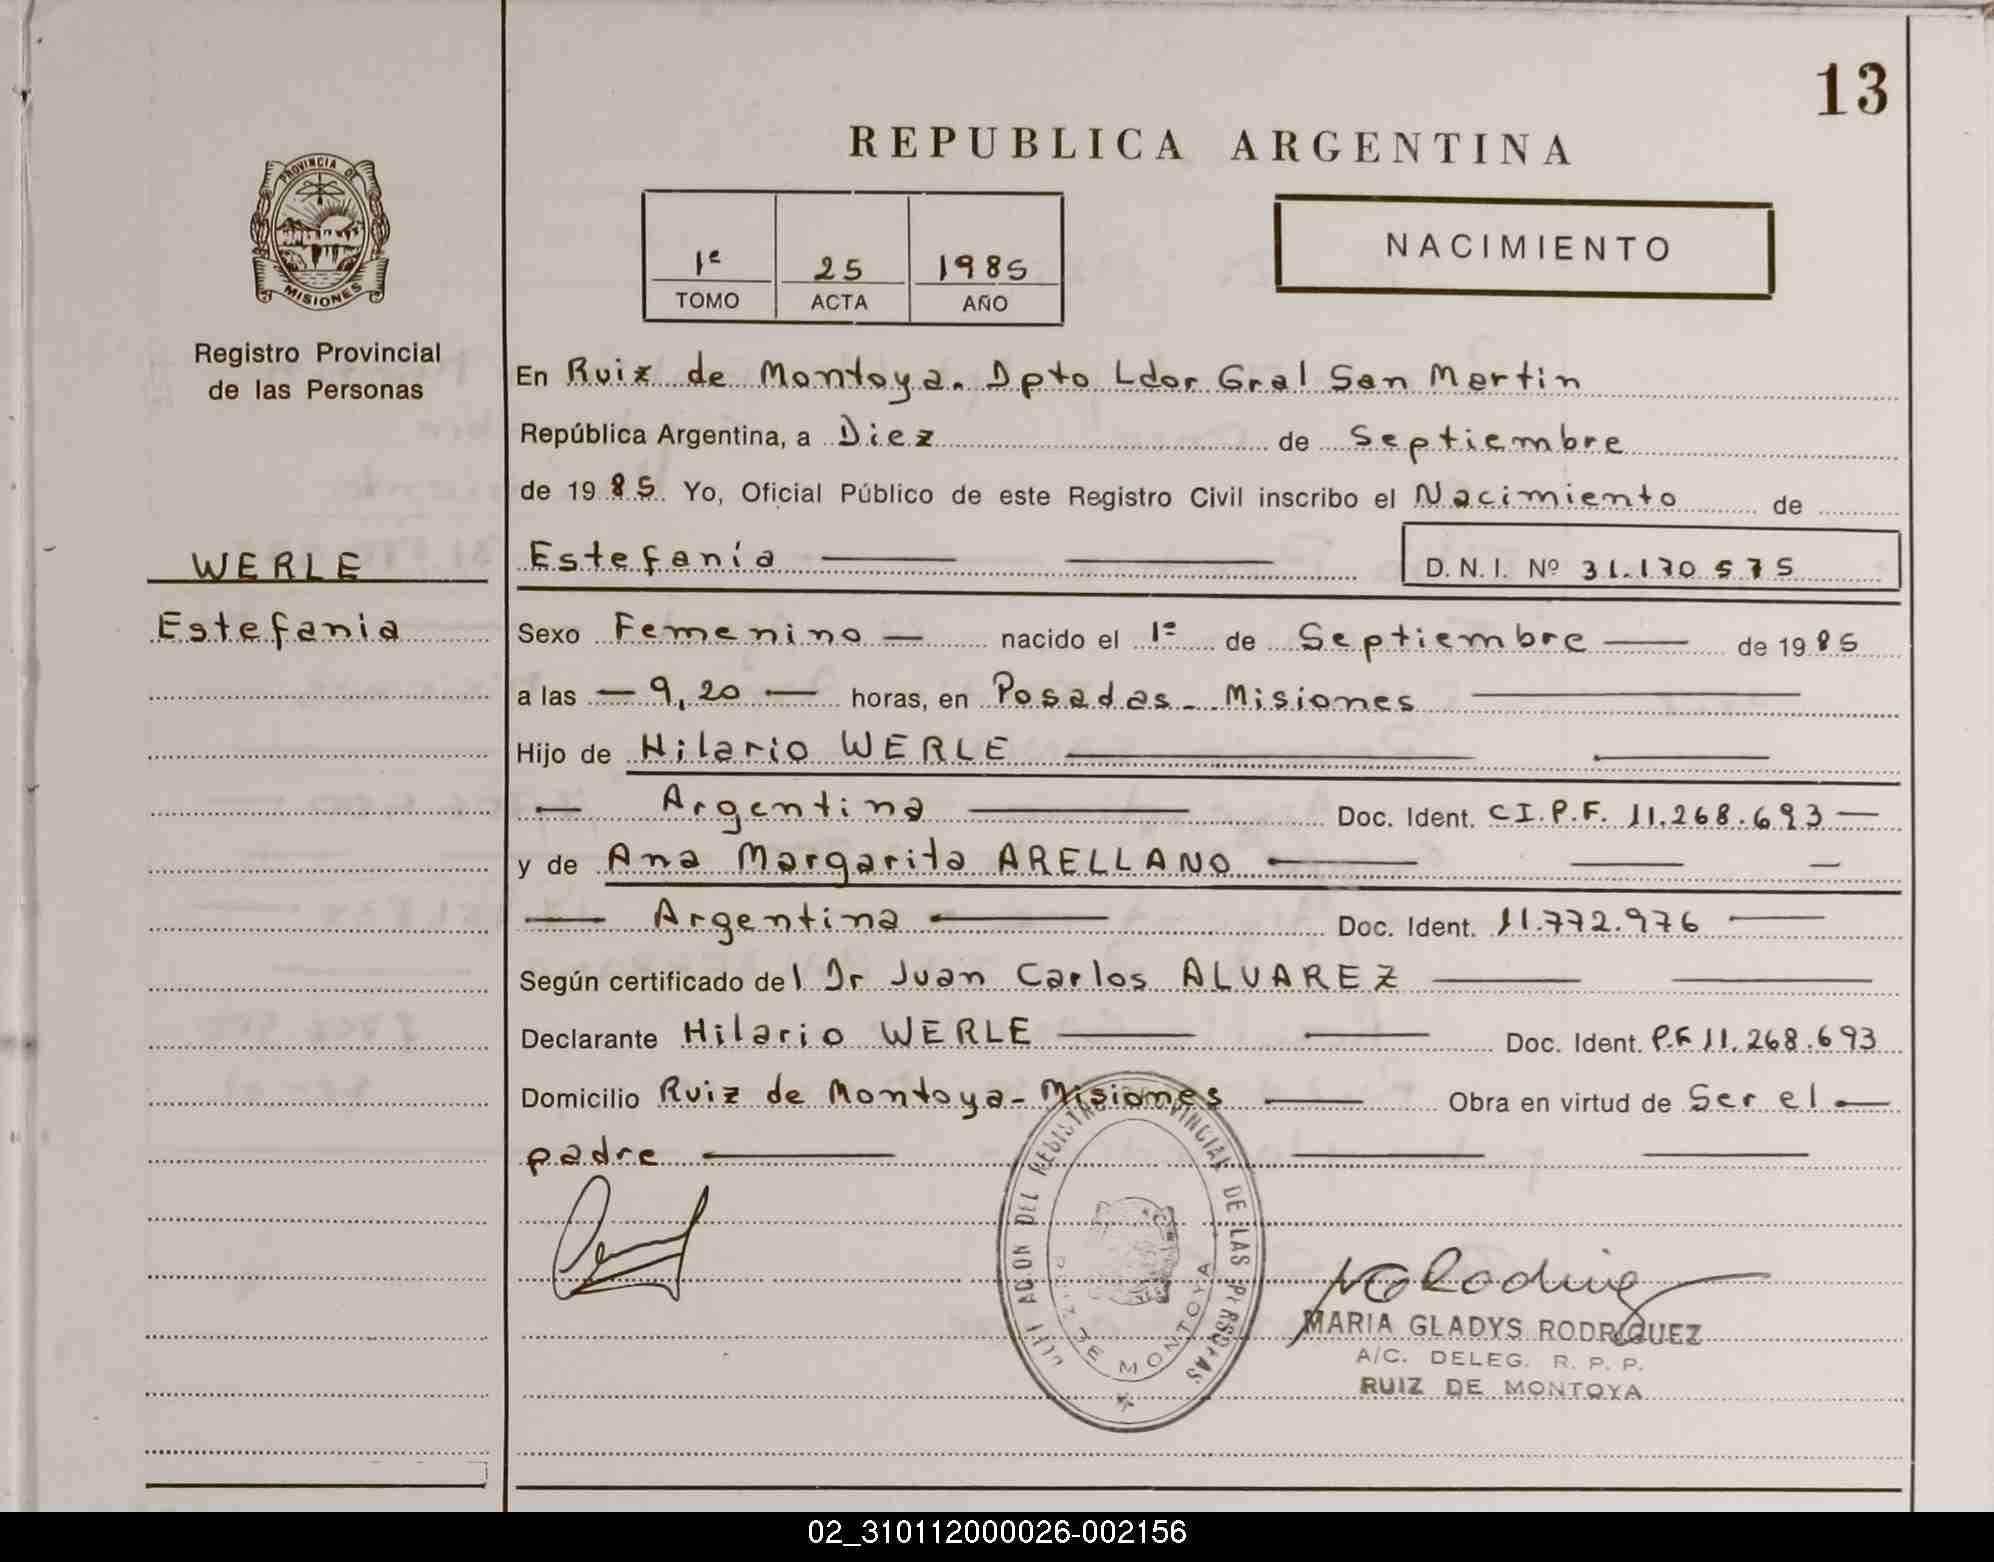 13
REPUBLICA ARGENTINA
PROVINCIA DE
MISIONES
Registro Provincial
de las Personas
1º 25 1985
TOMO ACTA AÑO
NACIMIENTO
En Ruiz de Montoya. Dpto Ldor Gral San Martin
República Argentina, a Diez de Septiembre
de 1985. Yo, Oficial Público de este Registro Civil inscribo el Nacimiento de
WERLE
Estefanía D.N.I. Nº 31.170 575
Estefania
Sexo Femenino — nacido el 1º de Septiembre — de 1985
a las — 9,20 — horas, en Posadas - Misiones
Hijo de Hilario WERLE
— Argentina — Doc. Ident. C.I.P.F. 11.268.693 —
y de Ana Margarita ARELLANO —
— Argentina — Doc. Ident. 11.772.976 —
Según certificado del Dr Juan Carlos ALVAREZ —
Declarante Hilario WERLE — Doc. Ident. P.F 11.268.693
Domicilio Ruiz de Montoya - Misiones — Obra en virtud de Ser el —
padre —
DEL REGISTRO PROVINCIAL DE LAS PERSONAS
RUIZ DE MONTOYA
MARIA GLADYS RODRIGUEZ
A/C. DELEG. R. P. P.
RUIZ DE MONTOYA
02_310112000026-002156